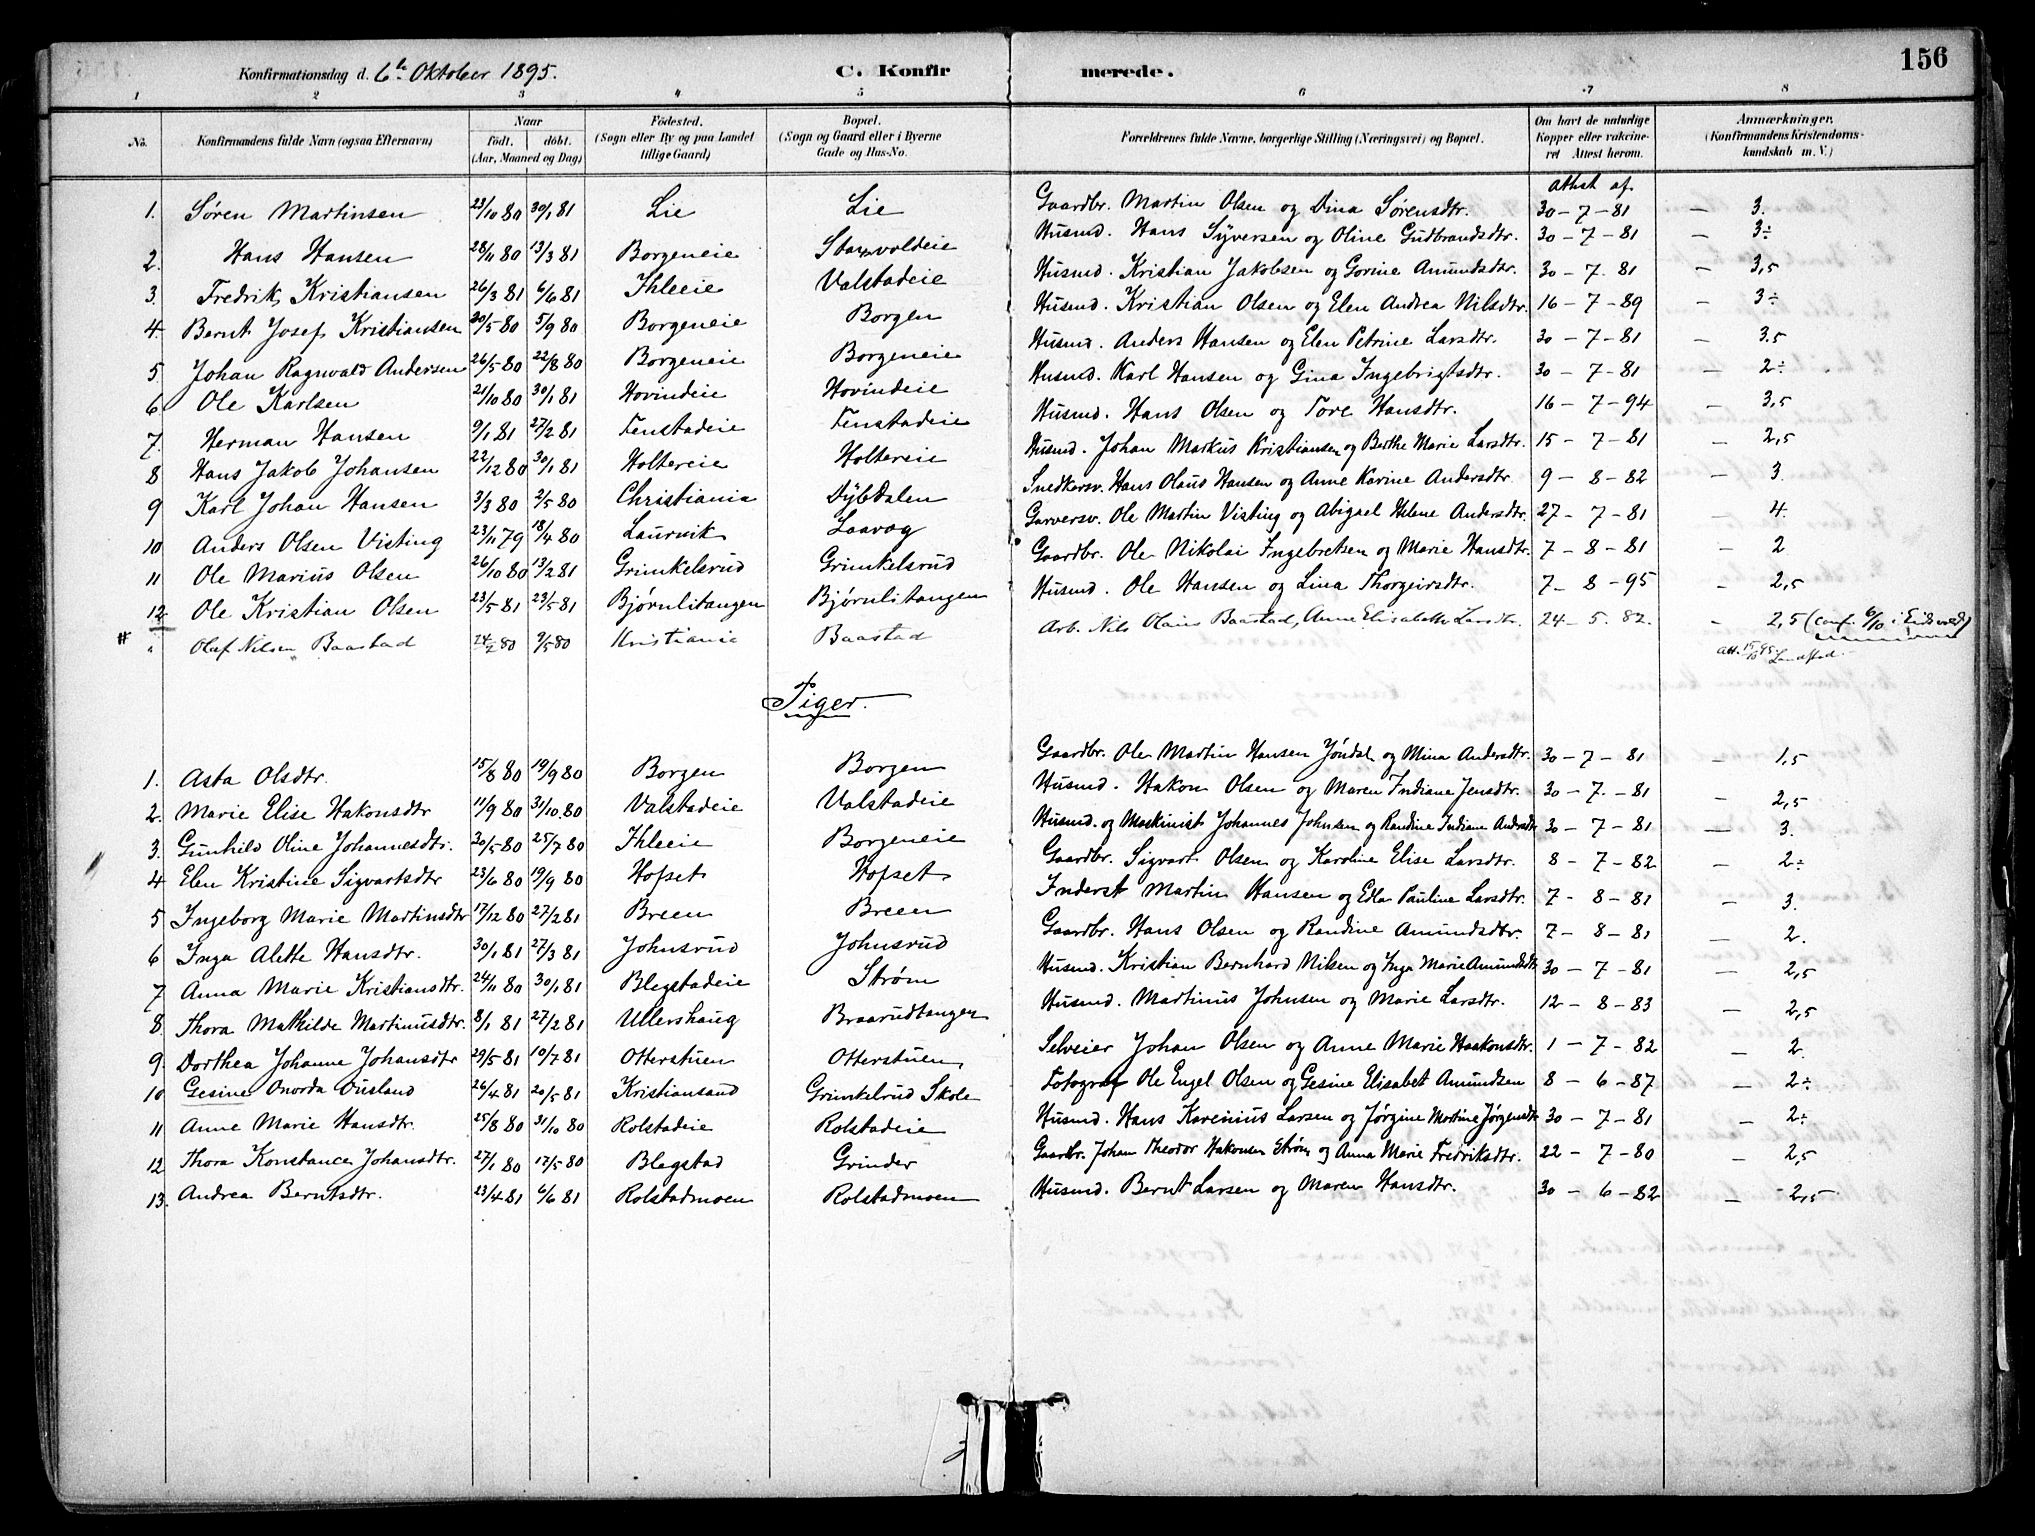 156
Konfirmationsdag d. 6te Oktober 1895. C. Konfirmerede.
1 2 3 4 5 6 7 8
No. Konfirmandens fulde Navn (ogsaa Efternavn) Naar født. døbt. (Aar, Maaned og Dag) Fødested. (Sogn eller By og paa Landet tillige Gaard) Bopæl. (Sogn og Gaard eller i Byerne Gade og Hus-No. Forældrenes fulde Navne, borgerlige Stilling (Næringsvei) og Bopæl. Om havt de naturlige Kopper eller vakcineret Attest herom. Anmærkninger. (Konfirmandens Kristendomskundskab m. V.)
Attest af
1. Søren Martinsen 23/10 80 30/1 81 Lie Lie Gaardbr. Martin Olsen og Dina Sørensdtr. 30-7-81 — 3.
2. Hans Hansen 28/11 80 13/3 81 Borgeneie Husmd. Hans Syversen og Oline Gudbrandsdtr. 30-7-81 — 3÷
3. Fredrik Kristiansen 26/3 81 6/6 81 Ihleeie Valstadeie Husmd. Kristian Jakobsen og Gorine Amundsdtr. 30-7-81 — 3,5
4. Bernt Josef Kristiansen 20/5 80 5/9 80 Borgeneie Borgen Husmd. Kristian Olsen og Elen Andrea Nilsdtr. 16-7-89 — 3÷
5 Johan Ragnvald Andersen 26/5 80 22/8 80 Borgeneie Borgeneie Husmd. Anders Hansen og Elen Petrine Larsdtr. 30-7-81 — 3.5
6 Ole Karlsen 21/10 80 30/1 81 Hovindeie Hovindeie Husmd. Karl Hansen og Gina Ingebrigtsdtr. 30-7-81 — 2÷
7. Herman Hansen 9/1 81 27/2 81 Fenstadeie Fenstadeie Husmd. Hans Olsen og Tore Hansdtr. 16-7-94 — 3,5
8 Hans Jakob Johansen 22/12 80 30/1 81 Holtereie Holtereie Husmd. Johan Markus Kristiansen og Berthe Marie Larsdtr. 15-7-81 — 2,5
9 Karl Johan Hansen 3/3 80 2/5 80 Christiania Dybdalen Snedkersv. Hans Olaus Hansen og Anne Karine Andersdtr. 9-8-82 — 3.
10 Anders Olsen Visting 23/11 79 18/4 80 Laurvik Laavog Garversv. Ole Martin Visting og Abigael Helene Andersdtr. 27-7-81 — 4.
11 Ole Marius Olsen 26/10 80 13/2 81 Grinkelsrud Grinkelsrud Gaardbr. Ole Nikolai Ingebretsen og Marie Hansdtr. 7-8-81 — 2
12 Ole Kristian Olsen 23/5 81 23/5 81 Bjørnlitangen Bjørnlitangen Husmd. Ole Hansen og Lina Thorgeirsdtr. 7-8-95 — 2,5
# " Olaf Nilsen Baastad 24/2 80 9/5 80 Kristiania Baastad Arb. Nils Olaus Baastad, Anne Elisabeth Larsdtr. 24-5-82. — 2,5 (conf. 6/10 i Eidsvold)
Att. 15/10 95.
Piger.
1. Asta Olsdtr. 15/8 80 19/9 80 Borgen Borgen Gaardbr. Ole Martin Hansen Jøndal og Mina Andersdtr. 30-7-81 — 1,5
2. Marie Elise Hakonsdtr 11/9 80 31/10 80 Valstadeie Valstadeie Husmd. Hakon Olsen og Maren Indiane Jensdtr. 30-7-81 — 2,5
3. Gunhild Oline Johannesdtr. 30/5 80 25/7 80 Ihleeie Borgeneie Husmd. og Maskinist Johannes Johnsen og Randine Indiane Andrsdtr 30-7-81 — 3.
4 Elen Kristine Sigvartsdtr 23/6 80 19/9 80 Hofset Hofset Gaardbr. Sigvart Olsen og Karoline Elise Larsdtr. 8-7-82 — 2÷
5 Ingeborg Marie Martinsdtr 17/12 80 27/2 81 Breen Breen Inderst Martin Hansen og Edla Pauline Larsdtr. 7-8-81 — 3.
6 Inga Alette Hansdtr. 30/1 81 27/3 81 Johnsrud Johnsrud Gaardbr. Hans Olsen og Randine Amundsdtr. 7-8-81 — 2.
7 Anna Marie Kristiansdtr. 24/11 80 30/1 81 Blegstadeie Strøm Husmd. Kristian Bernhard Nilsen og Inga Marie Amundsdtr 30-7-81 — 2,5
8. Thora Mathilde Martinusdtr. 8/1 81 27/2 81 Ullershaug Braarudtangen Husmd. Martinus Johnsen og Marie Larsdtr. 12-8-83 — 2,5
9. Dorthea Johanne Johansdtr 29/5 81 10/7 81 Otterstuen Otterstuen Selveier Johan Olsen og Anne Marie Haakonsdtr. 1-7-82 — 2.
10 Gesine Onorda Ousland 26/4 81 20/5 81 Kristiansand Grinkelrud Skole Fotograf Ole Engel Olsen og Gesine Elisabet Amundsen 8-6-87 — 2÷
11 Anne Marie Hansdtr. 25/8 80 31/10 80 Rolstadeie Rolstadeie Husmd. Hans Karenius Larsen og Jørgine Martine Jørgensdtr 30-7-81 — 2÷
12 Thora Konstance Johansdtr. 27/1 80 17/5 80 Blegstad Grinder Gaardbr. Johan Theodor Hakonsen Strøm og Anna Marie Fredriksdtr. 22-7-80 — 2,5
13. Andrea Berntsdtr. 23/4 81 6/6 81 Rolstadmoen Rolstadmoen Husmd. Bernt Larsen og Maren Hansdtr. 30-6-82 — 2,5